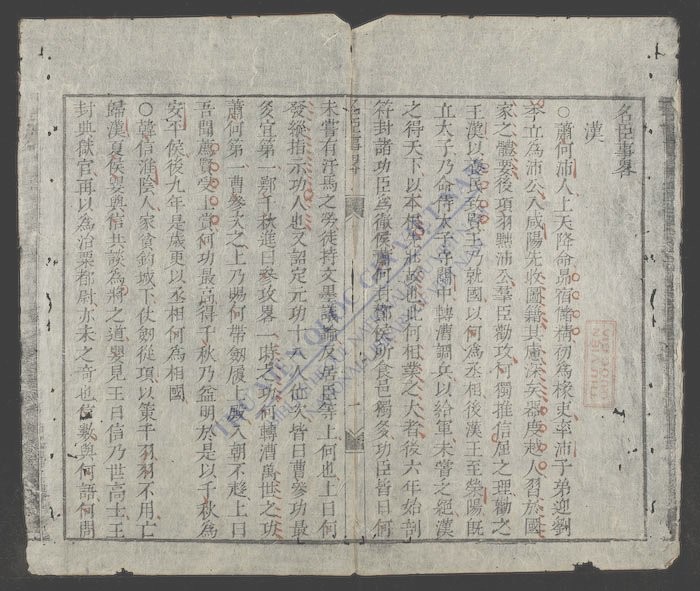 名臣事畧
漢
○蕭何沛人上天降命昴宿儲精初為椽吏率沛子弟迎劉
季立為沛公入咸陽先收圖籍其慮深矣器度越人習於國
家之體要後項羽王沛公羣臣勸攻何獨推信屈之理勸之
王漢以養民致賢王乃就國以何為丞相後漢王至滎陽既
立太子乃命侍太子守關中轉漕調兵以給軍未嘗乏絕漢
之得天下以本根先壯故也此何相業之大者後六年始剖
符封諸功臣為徹侯蕭何封酇侯所食邑獨多功臣皆曰何
名臣事畧
一
未嘗有汗馬之勞徒持文墨議論反居臣等上何也上曰何
發縱指示功人也又詔定元功十八人位次皆曰曹參功最
多宜第一鄂千秋進曰參攻畧一時之功何轉漕萬世之功
蕭何第一曹參次之上乃賜何帶劔履上殿入朝不趨上曰
吾聞薦賢受上賞何功最高得千秋乃益明於是以千秋為
安平侯後九年是歲更以丞相何為相國
○韓信淮陰人家貧釣城下仗劔從項以策干羽羽不用亡
歸漢夏侯嬰與信共談為將之道嬰見王曰信乃世高士王
封典獄官再以為治粟都尉亦未之奇也信數與何語何問